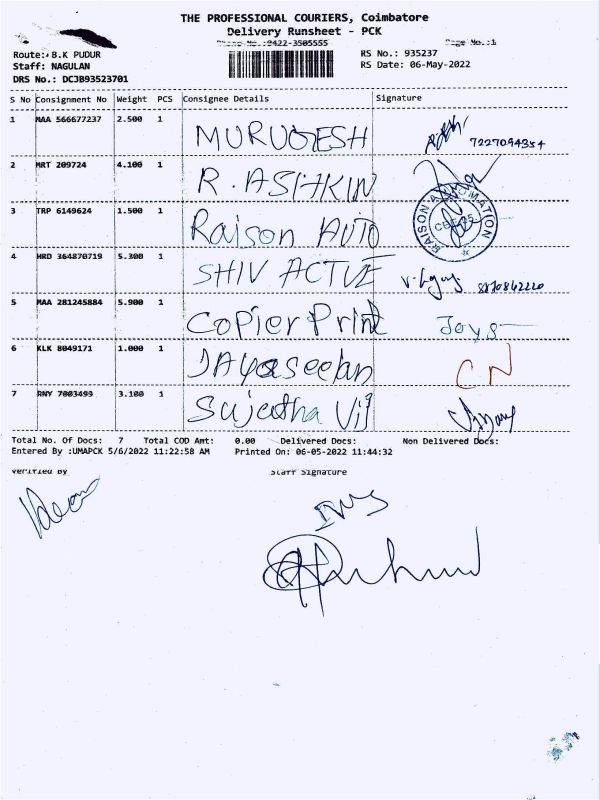 THE PROFESSIONAL COURIERS, Coimbatore
Delivery Runsheet - PCK
Phone No.:0422-3505555 Page No.:1
Route: B.K PUDUR RS No.: 935237
Staff: NAGULAN RS Date: 06-May-2022
DRS No.: DCJB93523701
S No Consignment No Weight PCS Consignee Details Signature
1 MAA 566677237 2.500 1 MURUGESH 7227094354
2 MRT 209724 4.100 1 R. ASHKIN
3 TRP 6149624 1.500 1 Raison AUTO RAISON AUTOMATION
4 HRD 364870719 5.300 1 SHIV ACTVE
5 MAA 281245884 5.900 1 Copier Print Joys
6 KLK 8049171 1.000 1 JAYaseelan CN
7 RNY 7003499 3.100 1 Sujeetha Vij
Total No. Of Docs: 7 Total COD Amt: 0.00 Delivered Docs: Non Delivered Docs:
Entered By :UMAPCK 5/6/2022 11:22:58 AM Printed On: 06-05-2022 11:44:32
Verified By Staff Signature